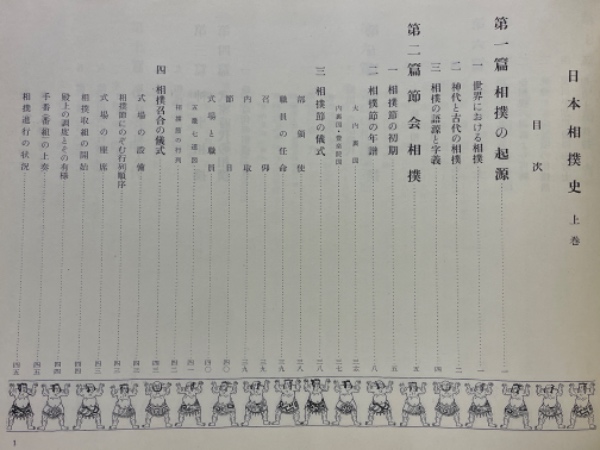 日本相撲史 上巻
目次
第一篇 相撲の起源 一
一 世界における相撲 一
二 神代と古代の相撲 二
三 相撲の語源と字義 四
第二篇 節会相撲 五
一 相撲節の初期 五
二 相撲節の年譜 八
大内裏図
内裏図・豊楽院図 三七
三 相撲節の儀式 三八
部領使 三八
職員の任命 三九
召仰 三九
内取 三九
節日 四〇
式場と職員 四〇
五畿七道図 四一
四二
四 相撲召合の儀式 四三
式場の設備 四三
相撲節にのぞむ行列順序 四三
式場の座席 四三
相撲取組の開始 四四
殿上の調度とその有様 四四
手番(番組)の上奏 四五
相撲進行の状況 四五
1